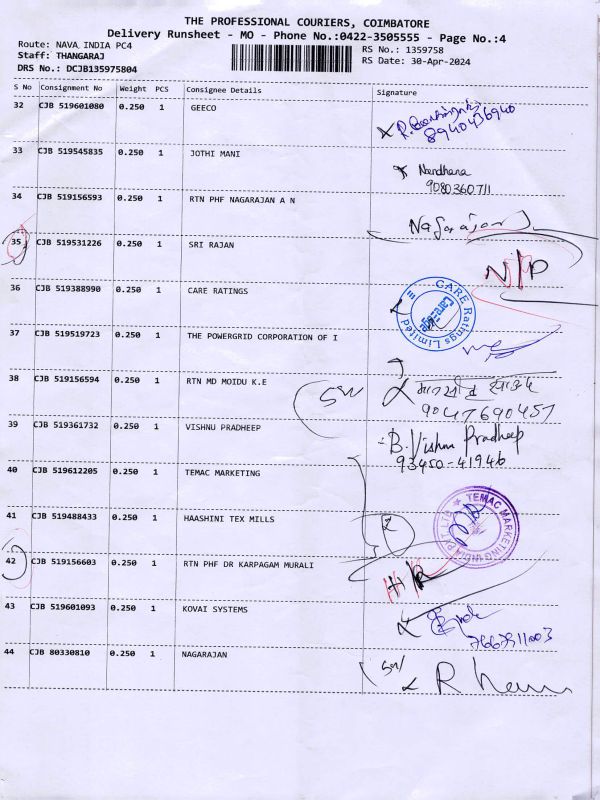 THE PROFESSIONAL COURIERS, COIMBATORE
Delivery Runsheet - MO - Phone No.:0422-3505555 - Page No.:4
Route: NAVA INDIA PC4 RS No.: 1359758
Staff: THANGARAJ RS Date: 30-Apr-2024
DRS No.: DCJB135975804
S No Consignment No Weight PCS Consignee Details Signature
32 CJB 519601080 0.250 1 GEECO
8940436940
33 CJB 519545835 0.250 1 JOTHI MANI
Nandhana
9080360711
34 CJB 519156593 0.250 1 RTN PHF NAGARAJAN A N
Nagarajan
35 CJB 519531226 0.250 1 SRI RAJAN
N/D
36 CJB 519388990 0.250 1 CARE RATINGS
CARE Ratings Limited
CareEdge
37 CJB 519519723 0.250 1 THE POWERGRID CORPORATION OF I
38 CJB 519156594 0.250 1 RTN MD MOIDU K.E
9047690457
39 CJB 519361732 0.250 1 VISHNU PRADHEEP
B. Vishnu Pradheep
93450-41946
40 CJB 519612205 0.250 1 TEMAC MARKETING
TEMAC MARKETING INDIA PVT LTD
41 CJB 519488433 0.250 1 HAASHINI TEX MILLS
42 CJB 519156603 0.250 1 RTN PHF DR KARPAGAM MURALI
43 CJB 519601093 0.250 1 KOVAI SYSTEMS
44 CJB 80330810 0.250 1 NAGARAJAN